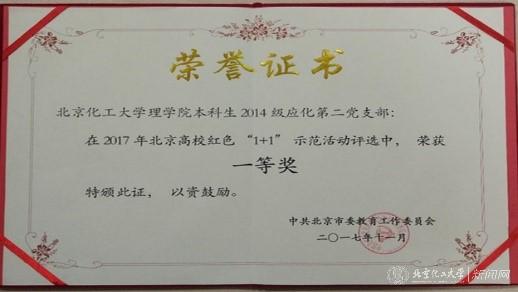 荣誉证书
北京化工大学理学院本科生2014级应化第二党支部：
在2017年北京高校红色“1+1”示范活动评选中，荣获
一等奖
特颁此证，以资鼓励。
中共北京市委教育工作委员会
二〇一七年十一月
北京化工大学 新闻网